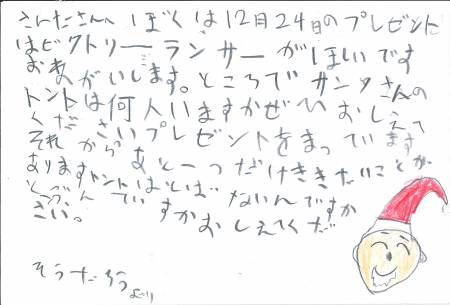 さんたさんへ ぼくは12月24日のプレゼント
はビクトリーランサーがほしいです
おねがいします。ところでサンタさんの
トントは何人いますかぜひおしえて
ください プレゼントをまっています
それからあと一つだけききたいことが
ありますトントはしば ないんですか
さい。 ですかおしえてくだ
そうたろうより